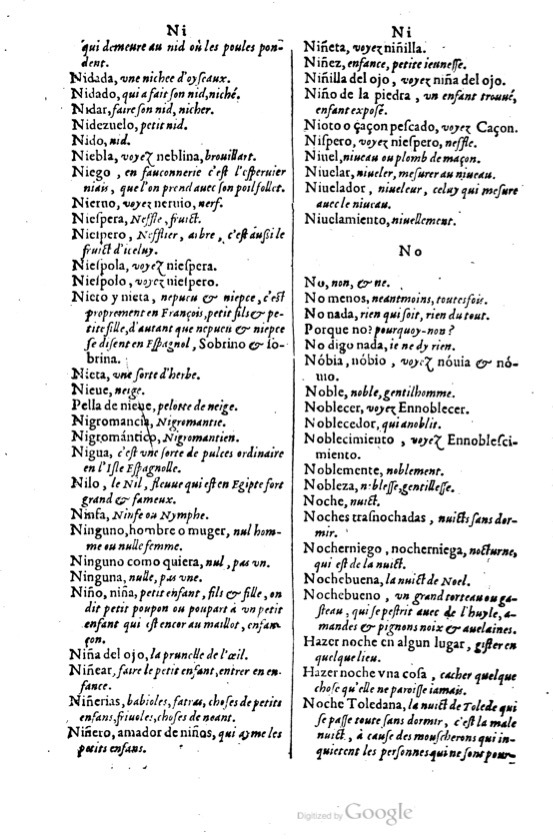 Ni
qui demeure au nid où les poules pon-
dent.
Nidada, vne nichee d'oyseaux.
Nidado, qui a fait ſon nid, niché.
Nidar, faire ſon nid, nicher.
Nidezuelo, petit nid.
Nido, nid.
Niebla, voyez neblina, brouillart.
Niego, en fauconnerie c'est l'eſperuier
niais, que l'on prend auec ſon poil follet.
Nierno, voyez neruio, nerf.
Nieſpera, Neffle, fruict.
Nieſpero, Nefflier, arbre, c'est außi le
fruict d'iceluy.
Nieſpola, voyez nieſpera.
Nieſpolo, voyez nieſpero.
Nieto y nieta, nepueu & niepce, c'est
proprement en François, petit fils & pe-
tite fille, d'autant que nepueu & niepce
ſe diſent en Eſpagnol, Sobrino & ſo-
brina.
Nieta, vne ſorte d'herbe.
Nieue, neige.
Pella de nieue, pelotte de neige.
Nigromancia, Nigromantie.
Nigromántico, Nigromantien.
Nigua, c'est vne ſorte de pulces ordinaire
en l'Iſle Eſpagnolle.
Nilo, le Nil, fleuue qui est en Egipte fort
grand & fameux.
Ninfa, Ninfe ou Nymphe.
Ninguno, hombre o muger, nul hom-
me ou nulle femme.
Ninguno como quiera, nul, pas vn.
Ninguna, nulle, pas vne.
Niño, niña, petit enfant, fils & fille, on
dit petit poupon ou poupart à vn petit
enfant qui est encor au maillot, enfan-
çon.
Niña del ojo, la prunelle de l'œil.
Niñear, faire le petit enfant, entrer en en-
fance.
Niñerias, babioles, fatras, choſes de petits
enfans, friuoles, choſes de neant.
Niñero, amador de niños, qui ayme les
petits enfans.
Ni
Niñeta, voyez niñilla.
Niñez, enfance, petite ieuneſſe.
Niñilla del ojo, voyez niña del ojo.
Niño de la piedra, vn enfant trouué,
enfant expoſé.
Nioto o çaçon peſcado, voyez Caçon.
Niſpero, voyez nieſpero, neffle.
Niuel, niueau ou plomb de maçon.
Niuelar, niueler, meſurer au niueau.
Niuelador, niueleur, celuy qui meſure
auec le niueau.
Niuelamiento, niuellement.
No
No, non, & ne.
No menos, neantmoins, toutesfois.
No nada, rien qui ſoit, rien du tout.
Porque no? pourquoy-non?
No digo nada, ie ne dy rien.
Nóbia, nóbio, voyez nóuia & nó-
uio.
Noble, noble, gentilhomme.
Noblecer, voyez Ennoblecer.
Noblecedor, qui anoblit.
Noblecimiento, voyez Ennobleſci-
miento.
Noblemente, noblement.
Nobleza, nobleſſe, gentilleſſe.
Noche, nuict.
Noches traſnochadas, nuicts ſans dor-
mir.
Nocherniego, nocherniega, nocturne,
qui est de la nuict.
Nochebuena, la nuict de Noel.
Nochebueno, vn grand torteau ou ga-
ſteau, qui ſe pestrit auec de l'huyle, a-
mandes & pignons noix & auelaines.
Hazer noche en algun lugar, giſter en
quelque lieu.
Hazer noche vna coſa, cacher quelque
choſe qu'elle ne paroiſſe iamais.
Noche Toledana, la nuict de Tolede qui
ſe paſſe toute ſans dormir, c'est la male
nuict, à cauſe des mouſcherons qui in-
quietent les perſonnes qui ne ſont pour-
Digitized by Google